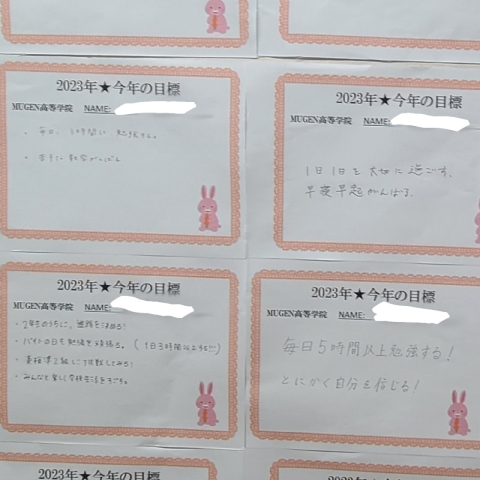 2023年★今年の目標
MUGEN高等学院 NAME:
・毎日、1時間は、勉強する。
・苦手な数学がんばる
2023年★今年の目標
MUGEN高等学院 NAME:
1日1日を大切に過ごす。
早寝早起がんばる。
2023年★今年の目標
MUGEN高等学院 NAME:
・2年生のうちに、進路を決める!
・バイトの日も勉強を頑張る。(1日3時間以上
・英検準2級に挑戦してみる!
・みんなと楽しく学校生活をすごす。
2023年★今年の目標
MUGEN高等学院 NAME:
毎日5時間以上勉強する!
とにかく自分を信じる!
2023年★今年の目標
2023年★今年の目標